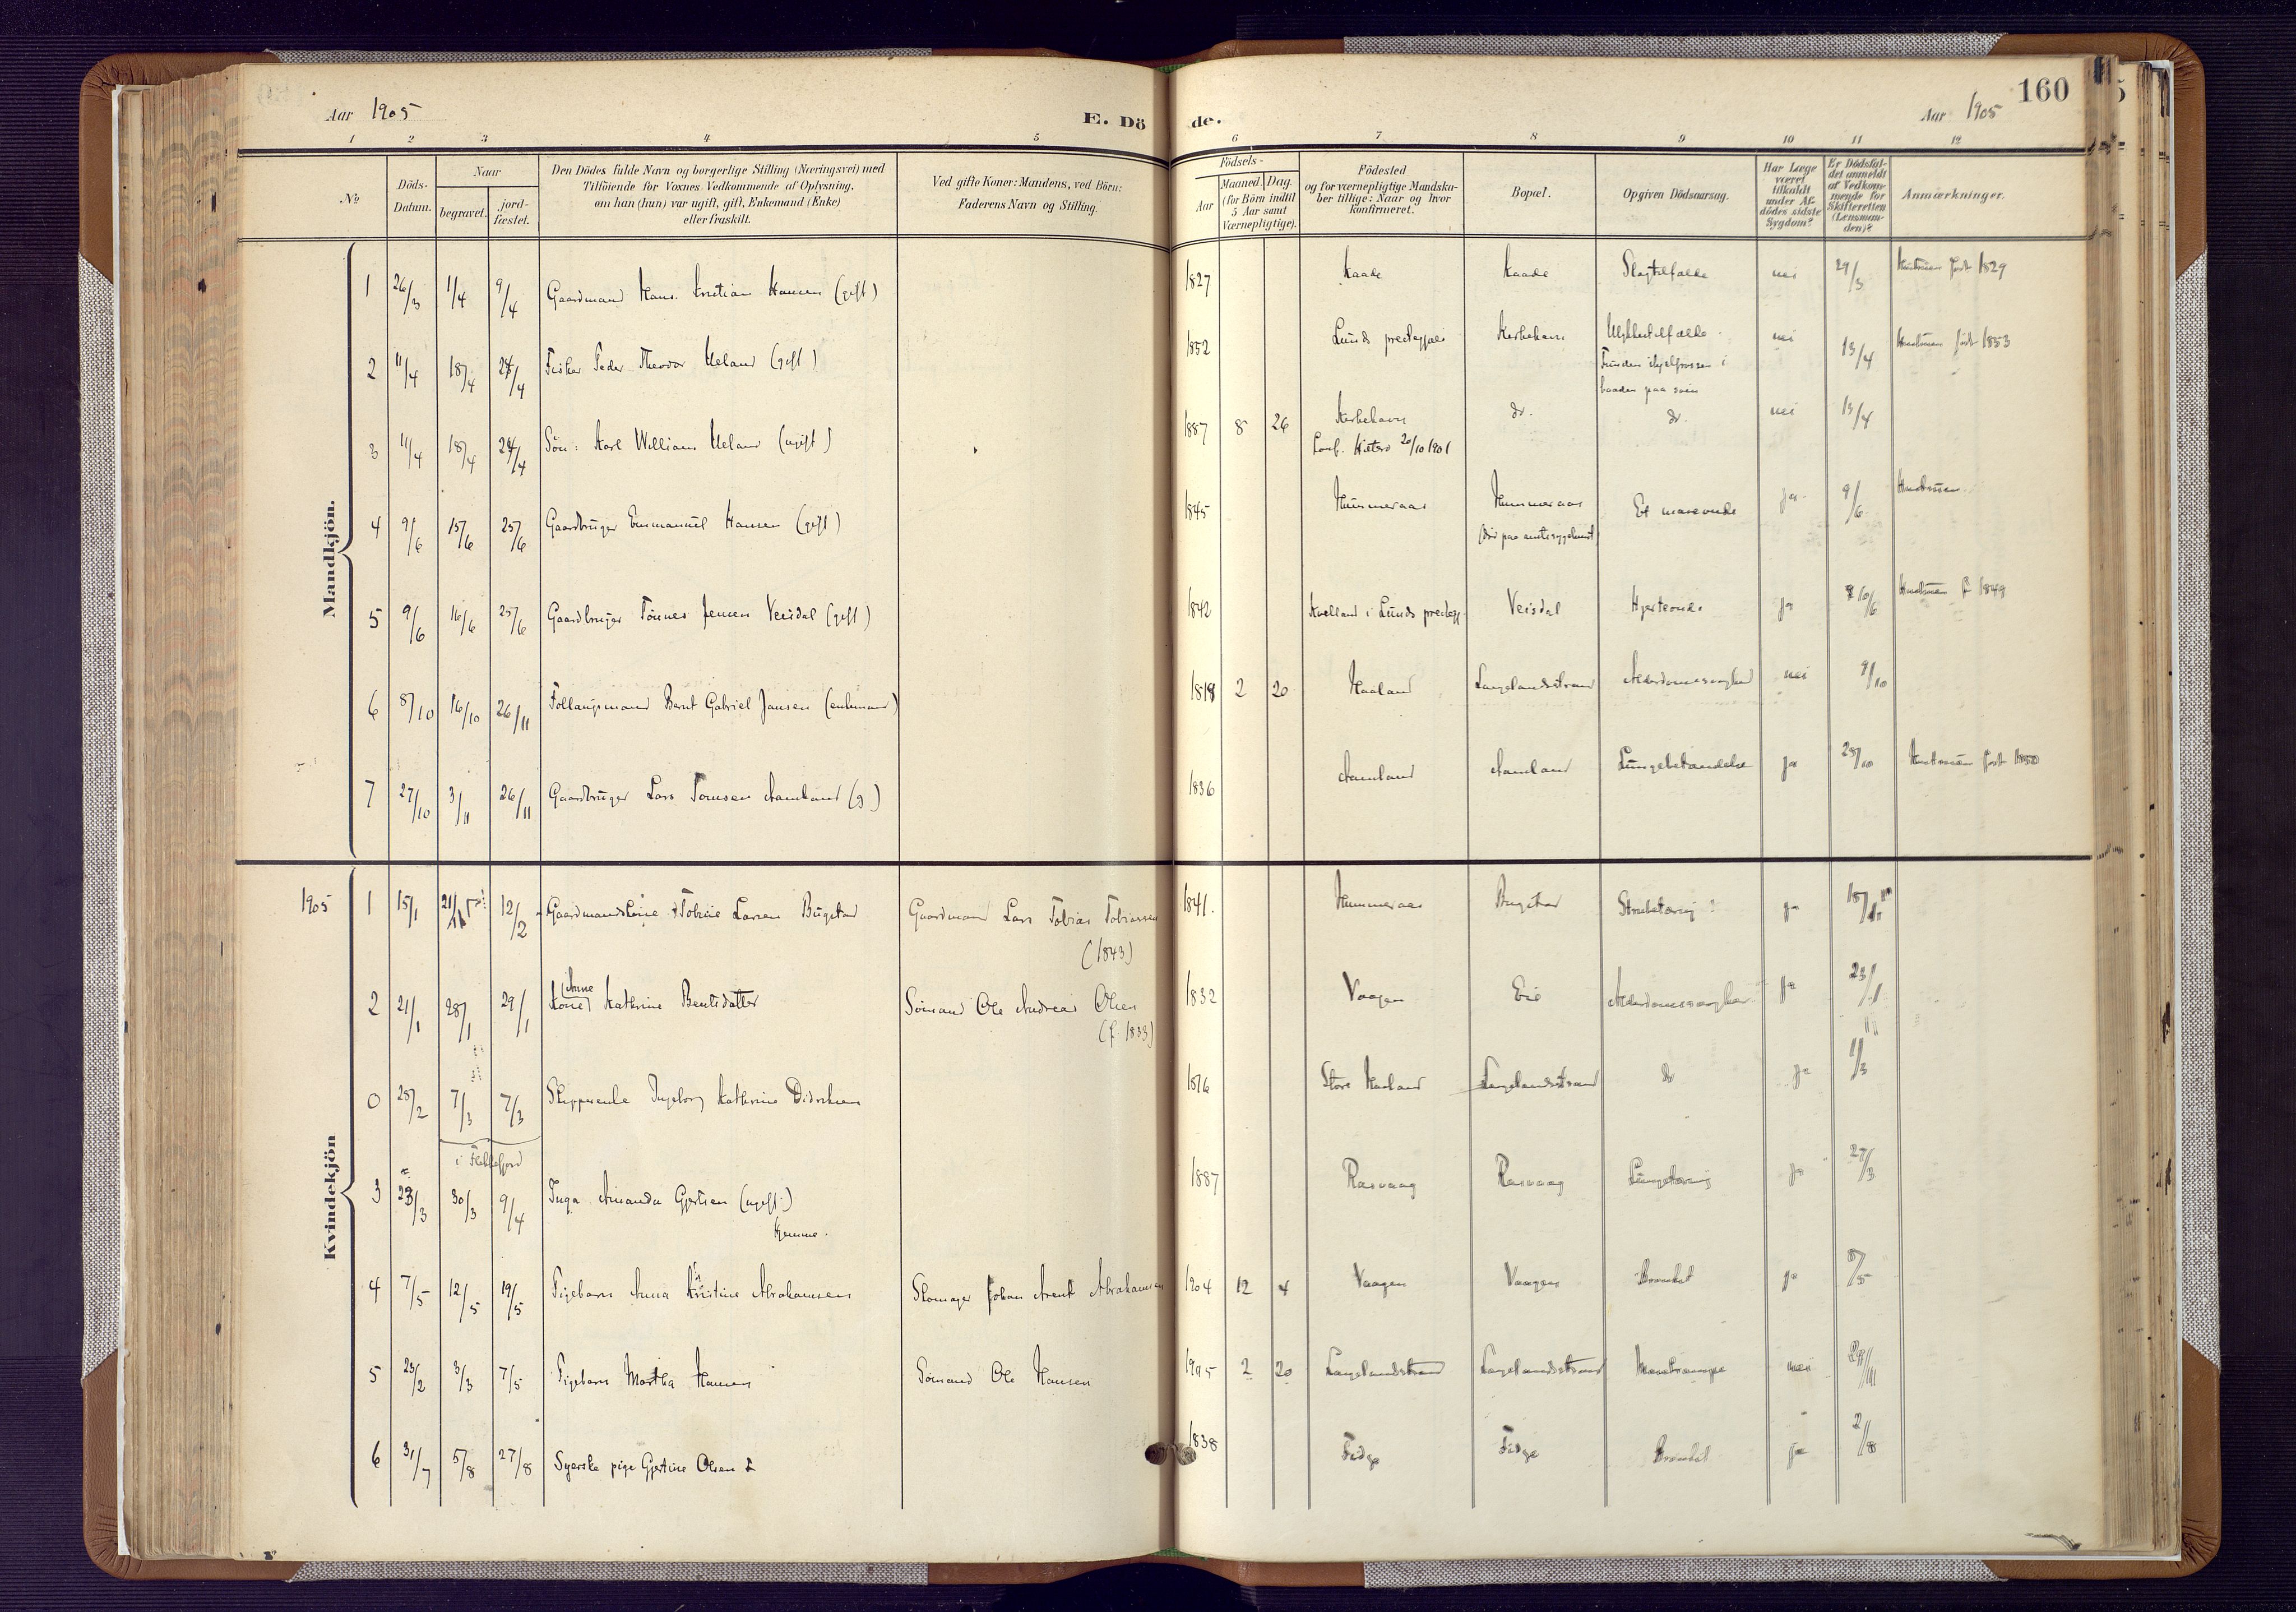 Aar 1905
E. Döde.
160
Aar 1905
1 2 3 4 5 6 7 8 9 10 11 12
No
Döds-Datum.
Naar
begravet.
jord-fæstet.
Den Dödes fulde Navn og borgerlige Stilling (Næringsvei) med
Tilföiende for Voxnes Vedkommende af Oplysning,
om han (hun) var ugift, gift, Enkemand (Enke)
eller fraskilt.
Ved gifte Koner: Mandens, ved Börn:
Faderens Navn og Stilling.
Födsels-
Aar
Maaned. Dag.
(for Börn indtil
5 Aar samt
Værnepligtige).
Födested
og for værnepligtige Mandska-
ber tillige: Naar og hvor
konfirmeret.
Bopæl.
Opgiven Dödsaarsag.
Har Læge
været
tilkaldt
under Af-
dödes sidste
Sygdom?
Er Dödsfal-
det anmeldt
af Vedkom-
mende for
Skifteretten
(Lensman-
den)?
Anmærkninger.
Mandkjön.
1 26/3 1/4 9/4 Gaardmand Hans Kristian Hansen (gift) 1827 Kaade Kaade Slagtilfælde nei 29/3 født 1829
2 11/4 18/4 24/4 Fisker Peder Theodor Ueland (gift) 1852 Lunds præstegjæld Kirkehavn Ulykkestilfælde nei 13/4 født 1853
Funden ihjelfrossen i
baaden paa søen
3 11/4 18/4 24/4 Søn: Karl William Ueland (ugift) 1887 8 26 Kirkehavn do. do. nei 13/4
Conf. Hitterø 20/10 1901
4 9/6 15/6 25/6 Gaardbruger Emmanuel Hansen (gift) 1845 Hummeraas Hummeraas ja 9/6
5 9/6 16/6 25/6 Gaardbruger Tønnes Jensen Veisdal (gift) 1842 Kvelland i Lunds præstegj. Veisdal Hjerteonde ja 10/6 f 1849
6 8/10 16/10 26/11 Follaugsmand Bernt Gabriel Jansen (enkemand) 1818 2 20 Haaland Langelandsstrand Alderdomssvaghed nei 9/10
7 27/10 3/11 26/11 Gaardbruger Lars Tomsen Aamland (g.) 1836 Aamland Aamland Lungebetændelse ja født 1850
Kvindekjön
1905 1 15/1 12/2 Gaardmandskone Tobine Larsen Bugstad Gaardmand Lars Tobias Tobiassen 1841. Hummeraas Bugstad Strubetæring ja
(1843)
2 21/1 28/1 29/1 Kone Anne Kathrine Berntsdatter Sømand Ole Andreas Olsen 1832 Vaagen Eie Alderdomssvaghed ja 23/1
(f. 1833)
0 25/2 7/3 7/3 Skipperenke Ingeborg Kathrine Didriksen 1816 Store Haaland Langelandsstrand do ja 1/3
i Flekkefjord
3 23/3 30/3 9/4 Inga Amanda Gjertsen (ugift) 1887 Rasvaag Rasvaag Lungetæring ja 27/3
hjemme.
4 7/5 12/5 19/5 Pigebarn Anna Kristine Abrahamsen Skomager Johan Arent Abrahamsen 1904 12 4 Vaagen Vaagen Bronkit ja 8/5
5 23/2 3/3 7/5 Pigebarn Martha Hansen Sømand Ole Hansen 1905 2 20 Langelandsstrand Langelandsstrand nei
6 31/7 5/8 27/8 Syerske pige Gjertine Olsen 1838 Fidge Fidge Bronkit ja 2/8